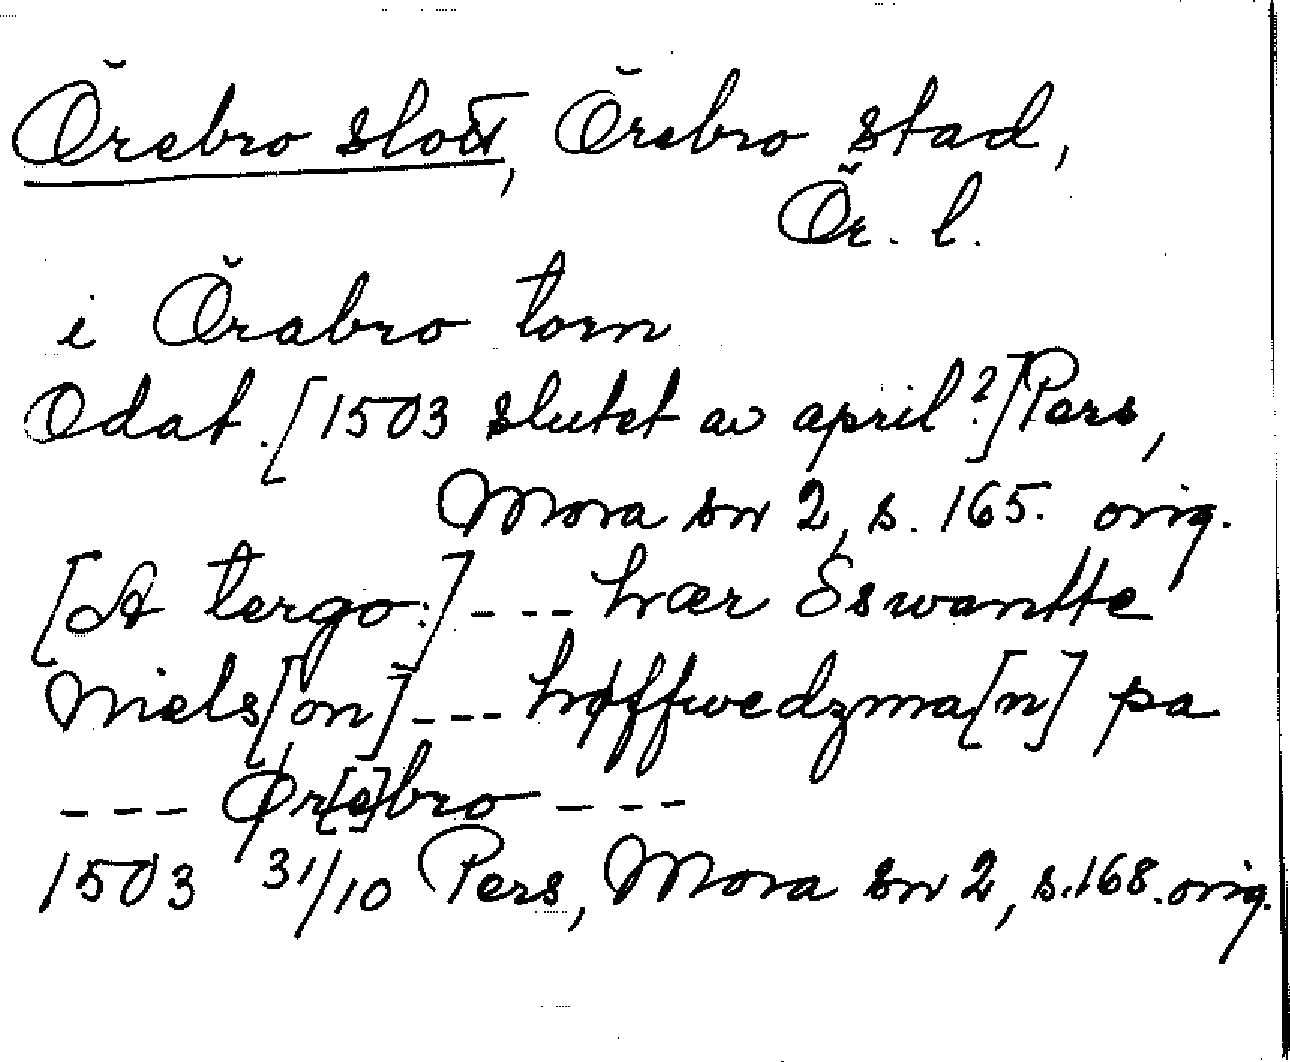 Örebro slott, Örebro stad,
Ör. l.
i Örabro torn
Odat. [1503 slutet av april?] Pers,
Mora sn 2, s. 165. orig.
[A tergo:] --- hær Swantte
Niels[on] --- høffwedzma[n] pa
--- Ør[e]bro ---
1503 31/10 Pers, Mora sn 2, s. 168. orig.